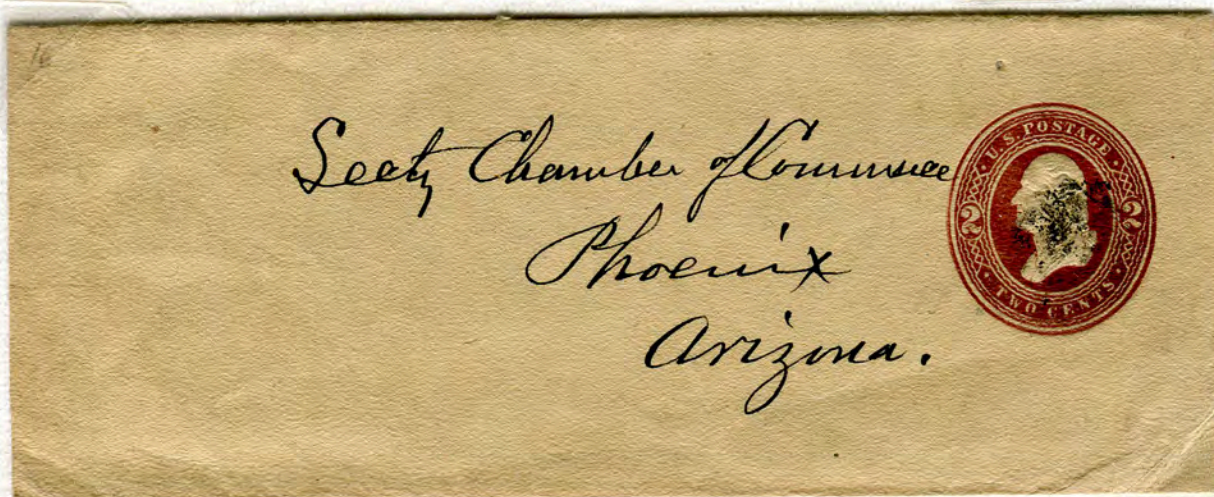 16
Secty Chamber of Commerce
Phoenix
Arizona.
U.S. POSTAGE
2 2
TWO CENTS